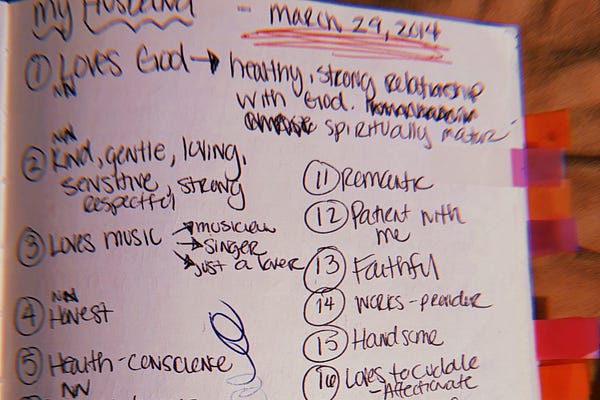 My Husband - March 29, 2014
① Loves God → healthy, strong relationship
NN with God.
spiritually mature
NN
② Kind, gentle, loving,
sensitive, strong
respectful
③ Loves music → musician
→ singer
→ just a lover
NN
④ Honest
⑤ Health-conscience
NN
⑪ Romantic
⑫ Patient with
me
⑬ Faithful
⑭ works - provider
⑮ Handsome
⑯ Loves to cuddle
- Affectionate